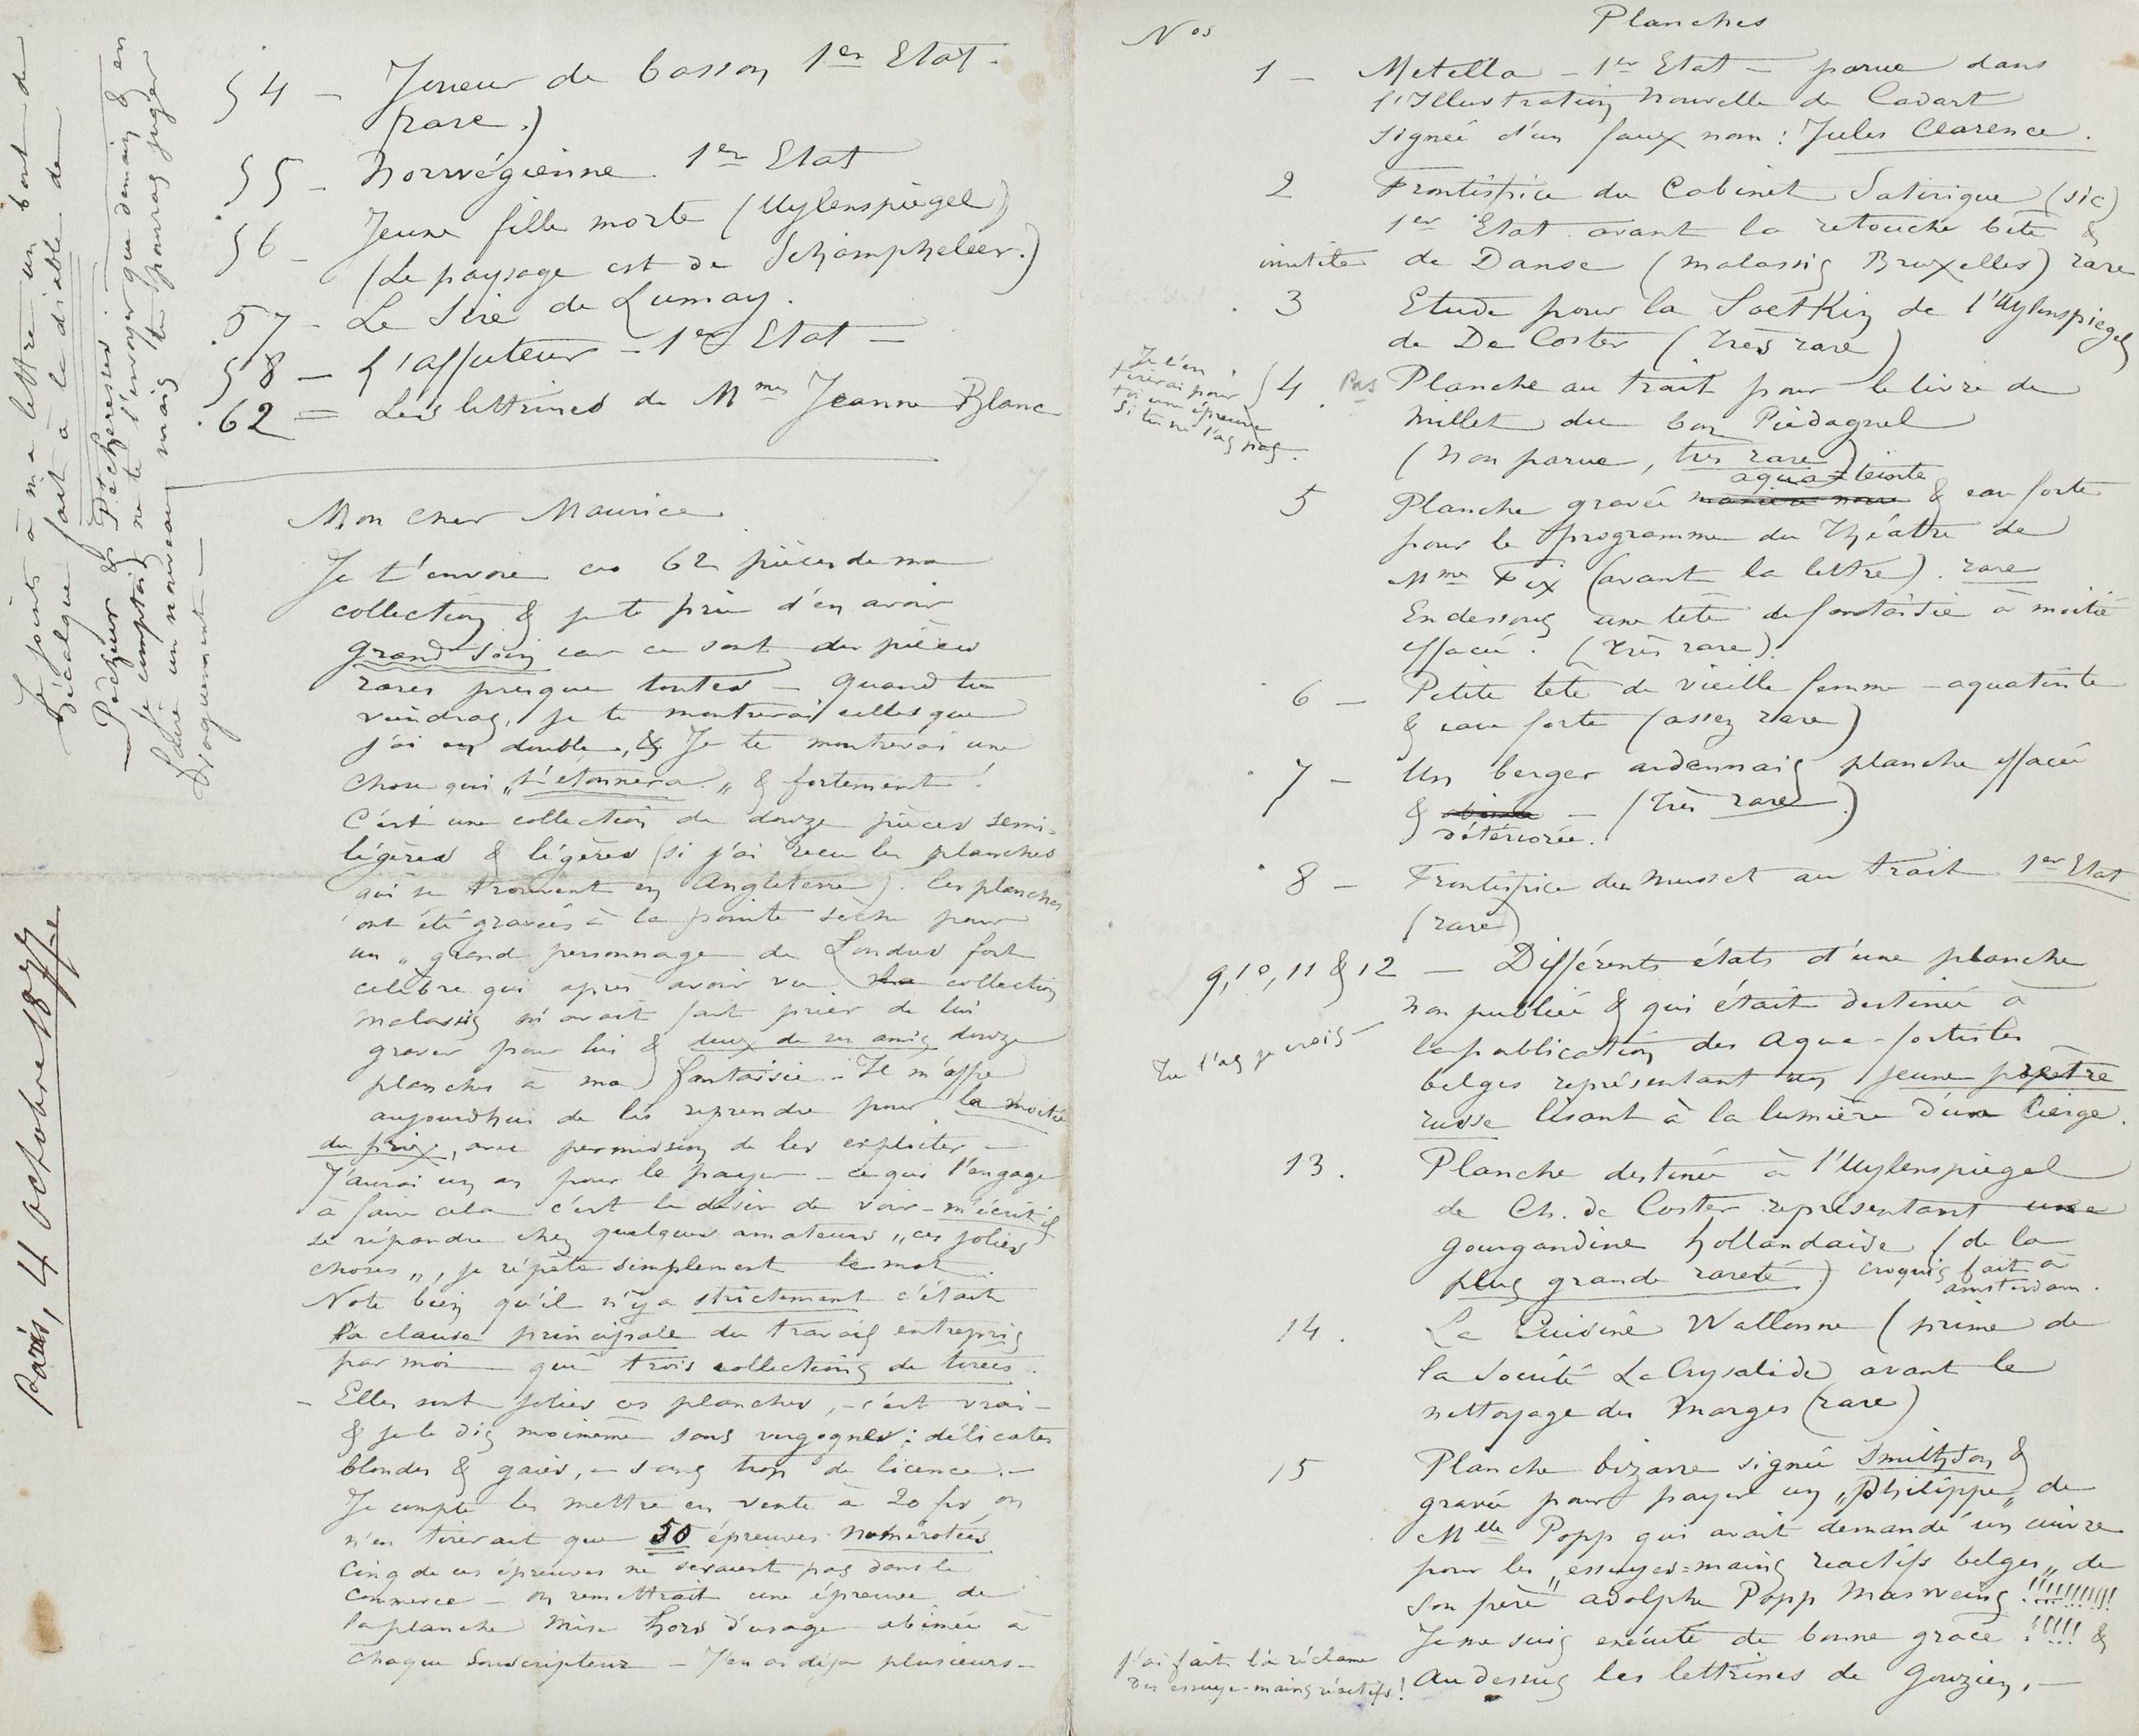 54 – Joueur de basson 1er Etat.
(rare.)
55 – Norwégienne. 1er Etat
56 – Jeune fille morte (Uylenspiegel)
(Le paysage est de Schampheleer.)
57 – Le Sire de Lumay.
58 – L'affuteur – 1er Etat –
62 = Les lettrines de Mme Jeanne Blanc
Mon cher Maurice
Je t'envoie ces 62 pièces de ma
collection & je te prie d'en avoir
grand soin car ce sont des pièces
rares presque toutes – Quand tu
viendras, je te montrerai celles que
j'ai en double, & Je te montrerai une
chose qui „t'étonnera„ & fortement !
C'est une collection de douze pièces semi-
légères & légères (si j'ai reçu les planches
qui se trouvent en Angleterre). Ces planches
ont été gravées à la pointe sèche pour
un „grand personnage de Londres fort
célèbre qui après avoir vu la collection
Malassis m'avait fait prier de lui
graver pour lui & deux de ses amis douze
planches à ma fantaisie. – Il m'offre
aujourdhui de les reprendre pour la moitié
du prix, avec permission de les exploiter –
J'aurai un an pour le payer – ce qui l'engage
à faire cela c'est le désir de voir – m'écrit-il
se répandre chez quelques amateurs „ces jolies
choses„, je répète simplement le mot.
Note bien qu'il n'y a strictement c'était
la clause principale du travail entrepris
par moi que trois collections de tirées.
– Elles sont jolies ces planches, – c'est vrai –
& je le dis moimême sans vergogne : délicates
blondes & gaies, – sans trop de licence. –
Je compte les mettre en vente à 20 frs, on
n'en tirerait que 50 épreuves numérotées
Cinq de ces épreuves ne seraient pas dans le
commerce – On remettrait une épreuve de
la planche mise hors d'usage abîmée à
chaque souscripteur – J'en ai déja plusieurs –
Je joints à ma lettre un bout de
décalque fait à la diable de
– Pêcheur & Pêcheresses.
Je comptais ne te l'envoyer que demain & en
faire un nouveau mais tu pourras juger
Paris, 4 octobre 1877
Nos Planches
1 – Metella – 1er Etat – parue dans
l'Illustration Nouvelle de Cadart
signée d'un faux nom : Jules Clarence.
2 Frontispice du Cabinet Satirique (sic)
1er Etat avant la retouche bête &
inutile de Danse (Malassis Bruxelles) rare
3 Etude pour la Soetkin de l'Uylenspiegel
de De Coster (Très rare)
Je t'en
tirerai pour
toi une épreuve
si tu ne l'as pas.
4 Pas Planche au trait pour le livre de
Millet du bon Piédagnel
(Non parue, très rare)
aqua-teinte
5 Planche gravée manière noire & eau forte
pour le programme du Théâtre de
Mme Fix (avant la lettre). rare
En dessous une tête de fantaisie à moitié
effacée. (Très rare).
6 – Petite tête de vieille femme – aquatinte
& eau forte (assez rare)
7 – Un berger ardennais planche effacée
& abimée – (Très rare.)
détériorée.
8 – Frontispice du Musset au trait 1er Etat
(rare)
9, 10, 11 & 12 – Différents états d'une planche
non publiée & qui était destinée à
la publication des Aqua-fortistes
Tu l'as je crois
belges représentant un jeune prêtre
russe lisant à la lumière d'un Cierge.
13. Planche destinée à l'Uylenspiegel
de Ch. de Coster représentant une
gourgandine hollandaise (de la
plus grande rareté) croquis fait à
amsterdam.
14. La Cuisine Wallonne (prime de
la Société La Crysalide) avant le
nettoyage des Marges (rare)
15 Planche bizarre signée Smithson &
gravée pour payer un „Philippe„ de
Mlle Popp qui avait demandé un cuivre
pour les „essuyes=mains réactifs belges„ de
son père Adolphe Popp Masweins !!!!!!!!!!!
Je me suis exécuté de bonne grace !!!!! &
J'ai fait la réclame
des essuye-mains réactifs !
Au dessus les lettrines de Gouzien, –